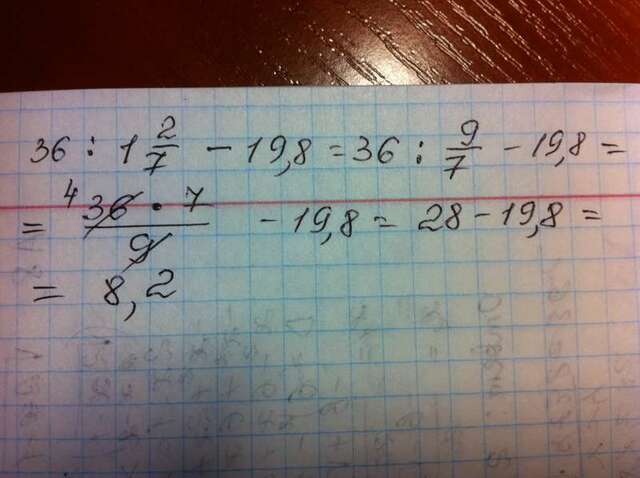 36 : 1 2/7 - 19,8 = 36 : 9/7 - 19,8 =
= 4 36 · 7 / 9 - 19,8 = 28 - 19,8 =
= 8,2